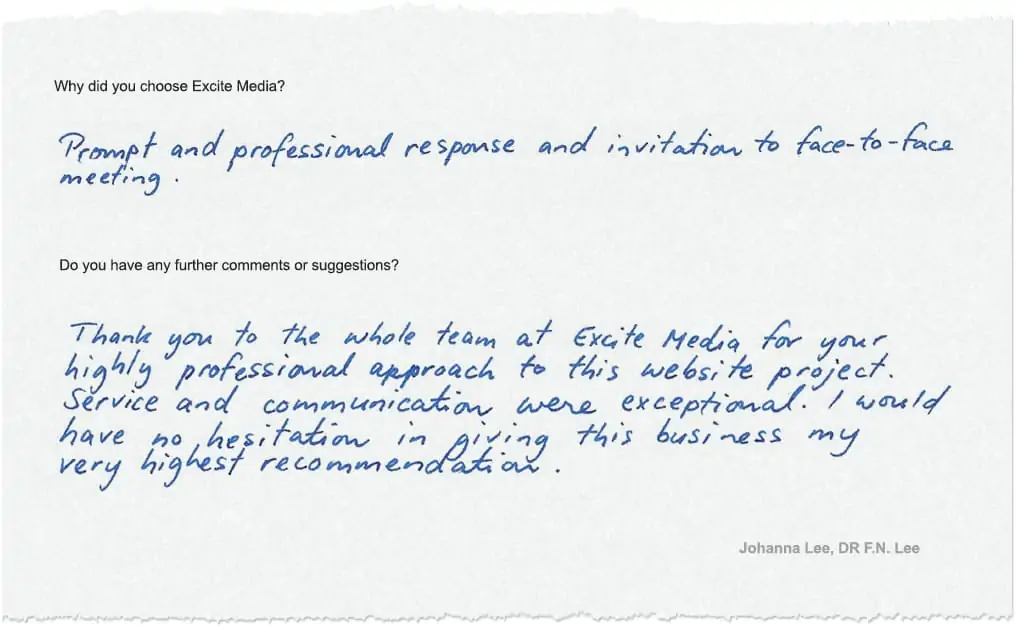 Why did you choose Excite Media?
Prompt and professional response and invitation to face-to-face
meeting.
Do you have any further comments or suggestions?
Thank you to the whole team at Excite Media for your
highly professional approach to this website project.
Service and communication were exceptional. I would
have no hesitation in giving this business my
very highest recommendation.
Johanna Lee, DR F.N. Lee